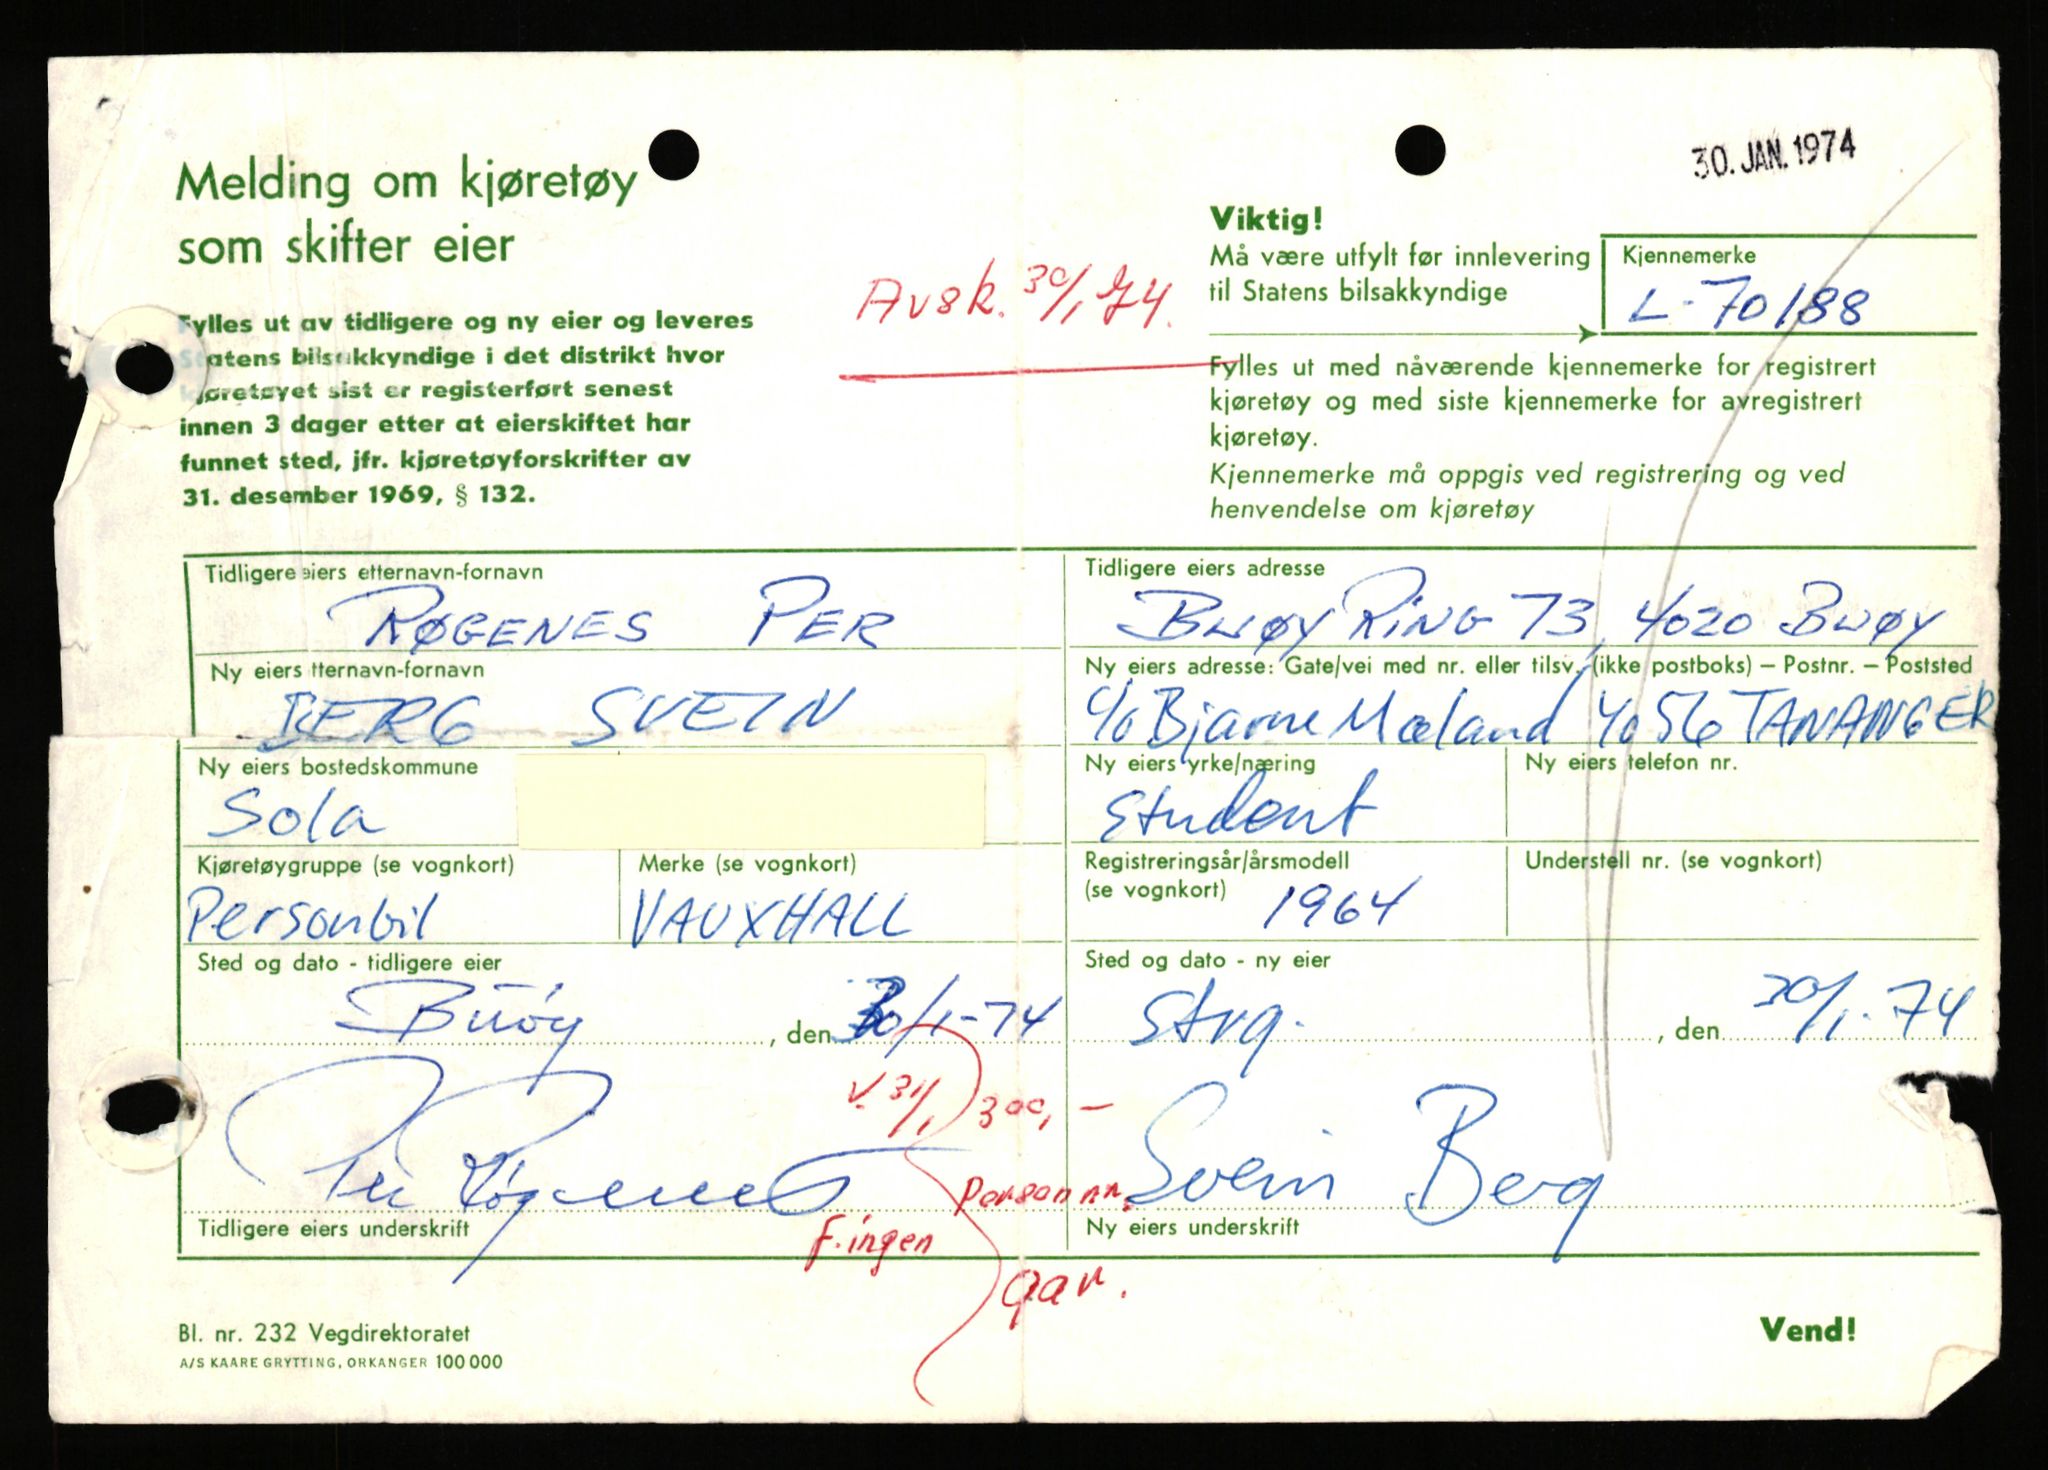 30. JAN. 1974
Melding om kjøretøy
som skifter eier
Fylles ut av tidligere og ny eier og leveres
Statens bilsakkyndige i det distrikt hvor
kjøretøyet sist er registerført senest
innen 3 dager etter at eierskiftet har
funnet sted, jfr. kjøretøyforskrifter av
31. desember 1969, § 132.
Avsk. 30/1 74.
Viktig!
Må være utfylt før innlevering
til Statens bilsakkyndige
Kjennemerke
L-70188
Fylles ut med nåværende kjennemerke for registrert
kjøretøy og med siste kjennemerke for avregistrert
kjøretøy.
Kjennemerke må oppgis ved registrering og ved
henvendelse om kjøretøy
Tidligere eiers etternavn-fornavn
RØGENES PER
Tidligere eiers adresse
BUØY RING 73, 4020 BUØY
Ny eiers etternavn-fornavn
BERG SVEIN
Ny eiers adresse: Gate/vei med nr. eller tilsv. (ikke postboks) – Postnr. – Poststed
c/o Bjarne Mæland 4056 TANANGER
Ny eiers bostedskommune
Sola
Ny eiers yrke/næring
Student
Ny eiers telefon nr.
Kjøretøygruppe (se vognkort)
Personbil
Merke (se vognkort)
VAUXHALL
Registreringsår/årsmodell
(se vognkort)
1964
Understell nr. (se vognkort)
Sted og dato - tidligere eier
Buøy, den 30/1-74
Sted og dato - ny eier
Stvg., den 30/1-74
V. 31/1 300,-
Per Røgenes
Svein Berg
Person nr.
Tidligere eiers underskrift
F.ingen
Ny eiers underskrift
gar.
Bl. nr. 232 Vegdirektoratet
A/S KAARE GRYTTING, ORKANGER 100 000
Vend!